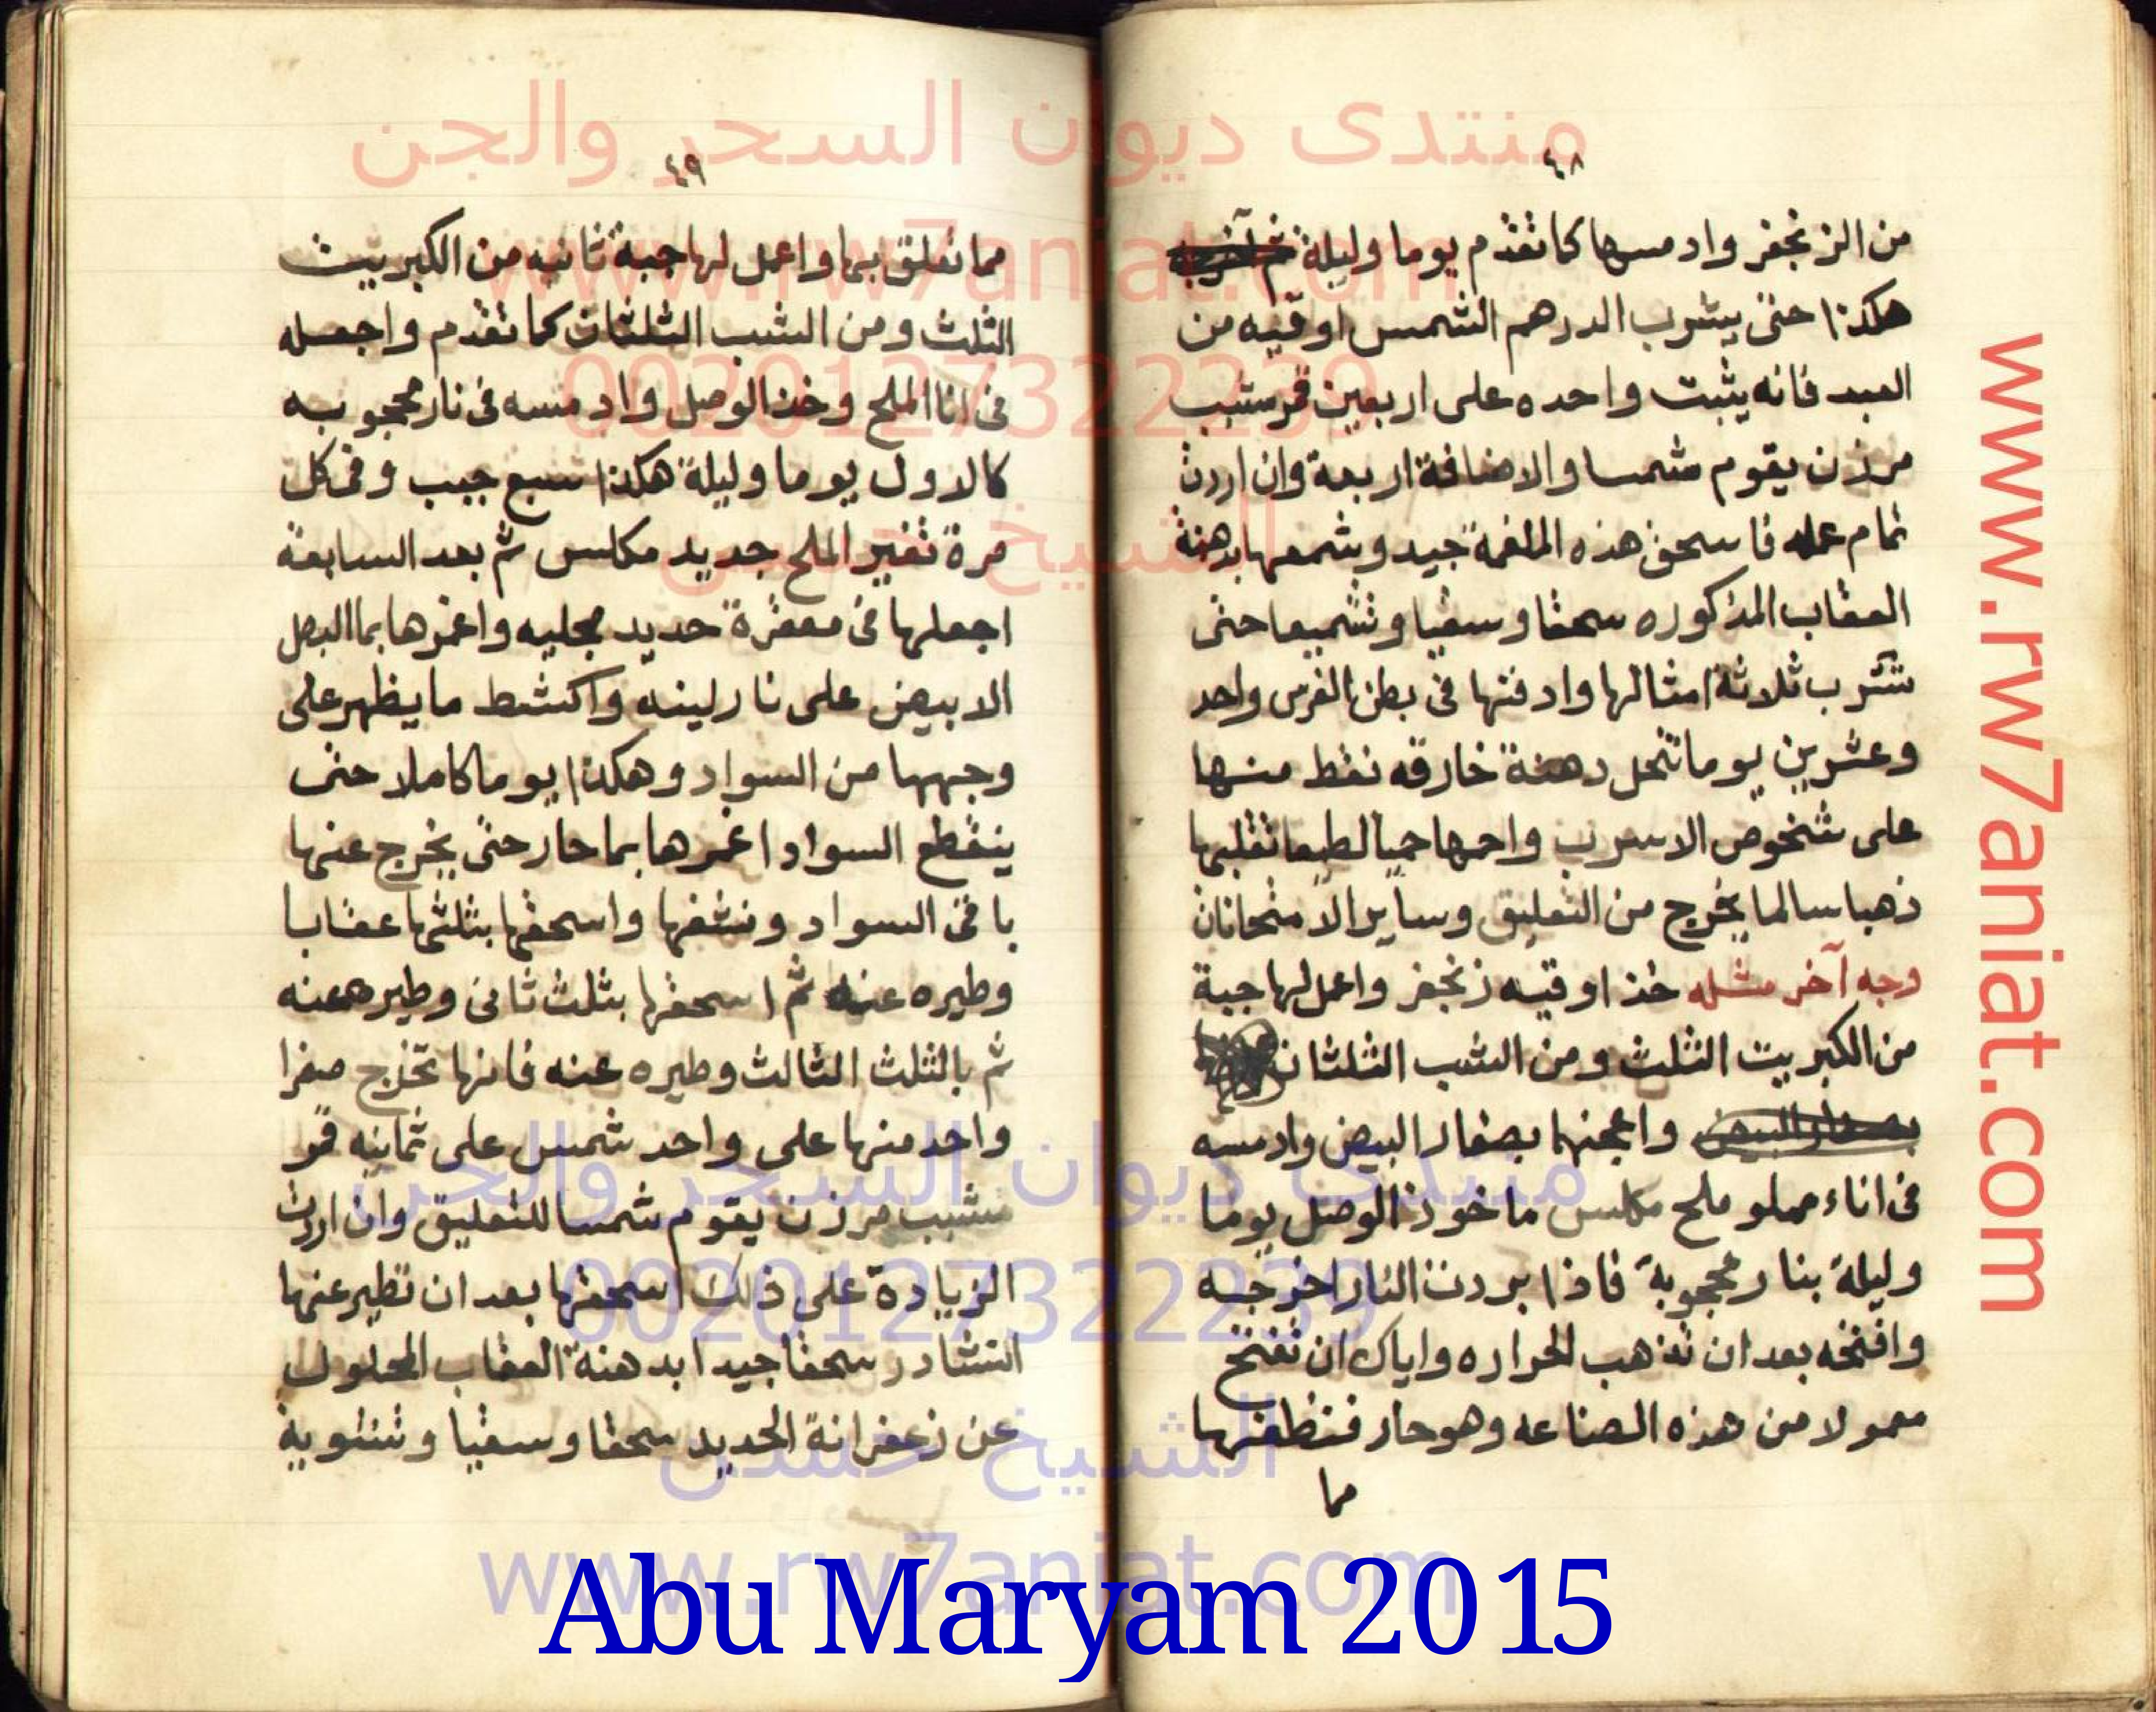 ٤٨
من الزنجفر وادمسها كما تقدم يوما وليلة
هكذا حتى يشرب الدرهم الشمس اوقيه من
العبد فانه يثبت واحده على اربعين قمر مشبب
مرزن يقوم شمسا والاضافة اربعة وان اردت
تمام عمله فاسحق هذه الملغمة جيد وشمعها بدهنة
العقاب المذكوره سحقا وسقيا وتشميعا حتى
تشرب ثلاثة امثالها وادفنها فى بطن الفرس واحد
وعشرين يوما تنحل دهنة خارقه نقط منها
على شخوص الاسرب واحمها حميا لطيفا تقلبها
ذهبا سالما يخرج من التعليق وساير الامتحانات
وجه آخر مثله خذ اوقيه زنجفر واعمل لها جبة
من الكبريت الثلث ومن الشب الثلثان
بصفار البيض واعجنها بصفار البيض وادمسه
فى اناء مملو ملح مكلس ماخوذ الوصل يوما
وليلة بنار محجوبة فاذا بردت النار اخرجه
وافتحه بعد ان تذهب الحراره واياك ان تفتح
معمولا من هذه الصناعه وهو حار فتنظفها
مما
٤٩
مما تعلق بها واعمل لها جبة ثانيه من الكبريت
الثلث ومن الشب الثلثان كما تقدم واجعله
فى انا الملح وخذ الوصل وادمسه فى نار محجوبه
كالاول يوما وليلة هكذا سبع جبب وفى كل
مرة تغير الملح جديد مكلس ثم بعد السابعة
اجعلها فى مغفرة حديد مجليه واغمرها بما البصل
الابيض على نار لينه واكشط ما يظهر على
وجهها من السواد وهكذا يوما كاملا حتى
ينقطع السواد اغمرها بما حار حتى يخرج عنها
باقى السواد ونشفها واسحقها بثلثها عقابا
وطيره عنه ثم اسحقها بثلث ثانى وطيره عنه
ثم بالثلث الثالث وطيره عنه فانها تخرج صفرا
واحد منها على واحد شمس على ثمانيه قمر
مشبب مرزن يقوم شمسا للتعليق وان اردت
الزيادة على ذلك اسحقها بعد ان تطير عنها
النشادر سحقا جيدا بدهنة العقاب المحلول
عن زعفرانة الحديد سحقا وسقيا وتشوية
منتدى ديوان السحر والجن
www.rw7aniat.com
0020127322239
الشيخ حسن
منتدى ديوان السحر والجن
0020127322239
الشيخ حسن
www.rw7aniat.com
www.rw7aniat.com
Abu Maryam 2015